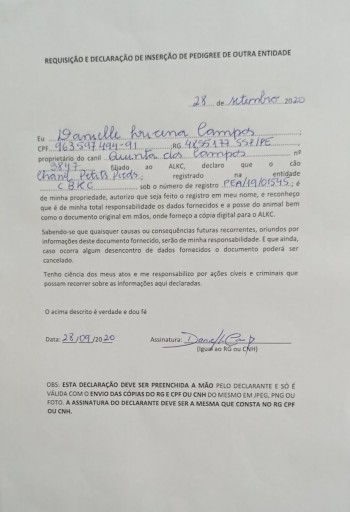 REQUISIÇÃO E DECLARAÇÃO DE INSERÇÃO DE PEDIGREE DE OUTRA ENTIDADE
28 de setembro 2020
Eu Danielle Luciana Campos,
CPF 963597494-91, RG 4855177 SSP/PE,
proprietário do canil Quinta dos Campos nº
9847 filiado ao ALKC, declaro que o cão
Chanel Petits Pieds, registrado na entidade
CBKC sob o número de registro PEA/19/01545, é
de minha propriedade, autorizo que seja feito o registro em meu nome, e reconheço
que é de minha total responsabilidade os dados fornecidos e a posse do animal bem
como o documento original em mãos, onde forneço a cópia digital para o ALKC.
Sabendo-se que quaisquer causas ou consequências futuras recorrentes, oriundos por
informações deste documento fornecido, serão de minha responsabilidade. E que ainda,
caso ocorra algum desencontro de dados fornecidos o documento poderá ser
cancelado.
Tenho ciência dos meus atos e me responsabilizo por ações cíveis e criminais que
possam recorrer sobre as informações aqui declaradas.
O acima descrito é verdade e dou fé
Data: 28/09/2020 Assinatura:
(Igual ao RG ou CNH)
OBS: ESTA DECLARAÇÃO DEVE SER PREENCHIDA A MÃO PELO DECLARANTE E SÓ É
VÁLIDA COM O ENVIO DAS CÓPIAS DO RG E CPF OU CNH DO MESMO EM JPEG, PNG OU
FOTO. A ASSINATURA DO DECLARANTE DEVE SER A MESMA QUE CONSTA NO RG CPF
OU CNH.